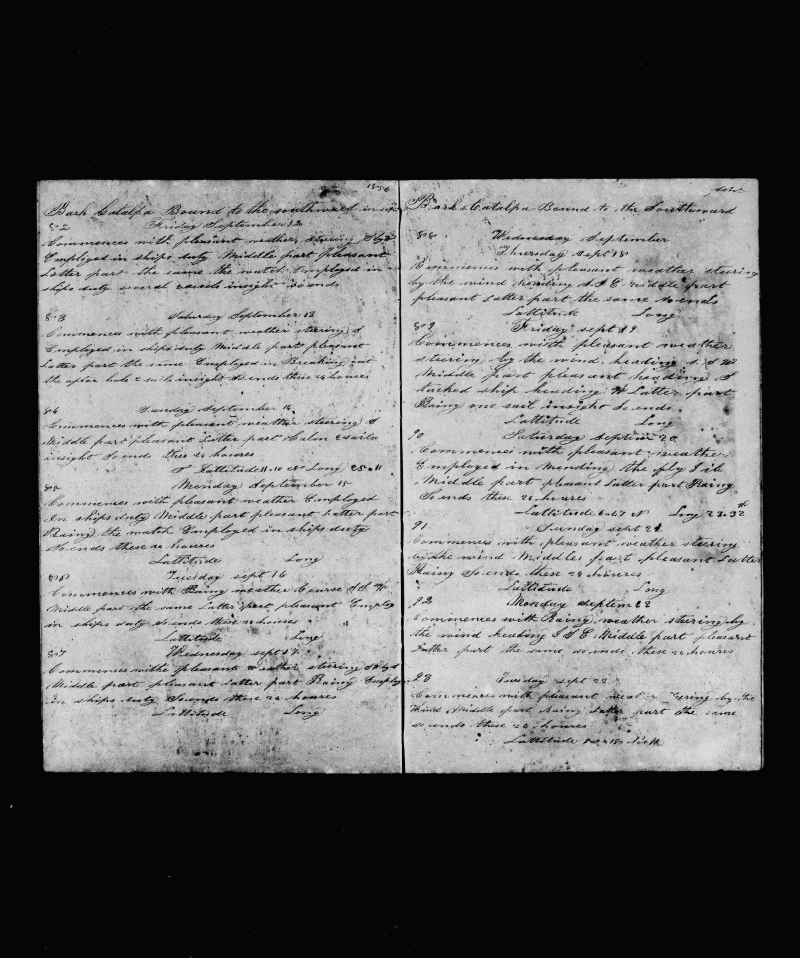 1856
Bark Catalpa Bound to the southward
82 Friday September 12
Commences with pleasant weather steering
Employed in ships duty Middle part pleasant
Latter part the same the watch Employed in
ships duty several vessels insight So ends
83 Saturday September 13
Commences with pleasant weather steering S
Employed in ships duty Middle part pleasant
Latter part the same Employed in Breaking out
the after hole 2 sails insight So ends these 24 houres
84 Sunday September 14
Commences with pleasant weather steering S
Middle part pleasant Latter part Calm 2 sails
insight So ends these 24 houres
Lattitude 11.10 N Long 25.11
85 Monday September 15
Commences with pleasant weather Employed
In ships duty Middle part pleasant Latter part
Rainy the watch Employed in ships duty
So ends these 24 houres
Lattitude Long
86 Tuesday sept 16
Commences with Rainy weather Course S S W
Middle part the same Latter part pleasant Employ
in ships duty So ends these 24 houres
Lattitude Long
87 Wednesday sept 17
Commences withe pleasant weather steering
Middle part pleasant Latter part Rainy Employ
In ships duty So ends these 24 houres
Lattitude Long
Bark Catalpa Bound to the Southward
88 Wednesday September
Thursday sept 18
Commences with pleasant weather steering
by the wind heading S S E Middle part
pleasant Latter part the same So ends
Lattitude Long
89 Friday sept 19
Commences with pleasant weather
steering by the wind heading S S W
Middle part pleasant heading S
tacked ship heading W Latter part
Rainy one sail insight So ends
Lattitude Long
90 Saturday septem 20
Commences with pleasant weather
Employed in Mending the fly Jib
Middle part pleasant Latter part Rainy
So ends these 24 houres
Lattitude N Long 23.32
91 Sunday sept 21
Commences with pleasant weather steering
by the wind Middle part pleasant Latter
Rainy So ends these 24 houres
Lattitude Long
92 Monday septem 22
Commences with Rainy weather steering by
the wind heading S S E Middle part pleasant
Latter part the same so ends these 24 houres
93 Tuesday sept 23
Commences with pleasant by the
Wind Middle part Rainy Latter part the same
so ends these 24 houres
Lattitude North